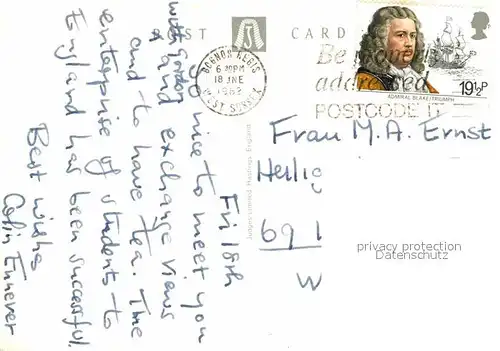 POST CARD
BOGNOR REGIS
6 30PM
18 JNE
1982
WEST SUSSEX
Be
addressed
POSTCODE IT
19½P
ADMIRAL BLAKE/TRIUMPH
Fri 18th
So nice to meet you
with
and exchange views
and to have tea. The
enterprise of students to
England has been successful.
Best wishes
Colin
Judges Limited, Hastings, England
Frau M.A. Ernst
Heilig
69 1
W
privacy protection
Datenschutz